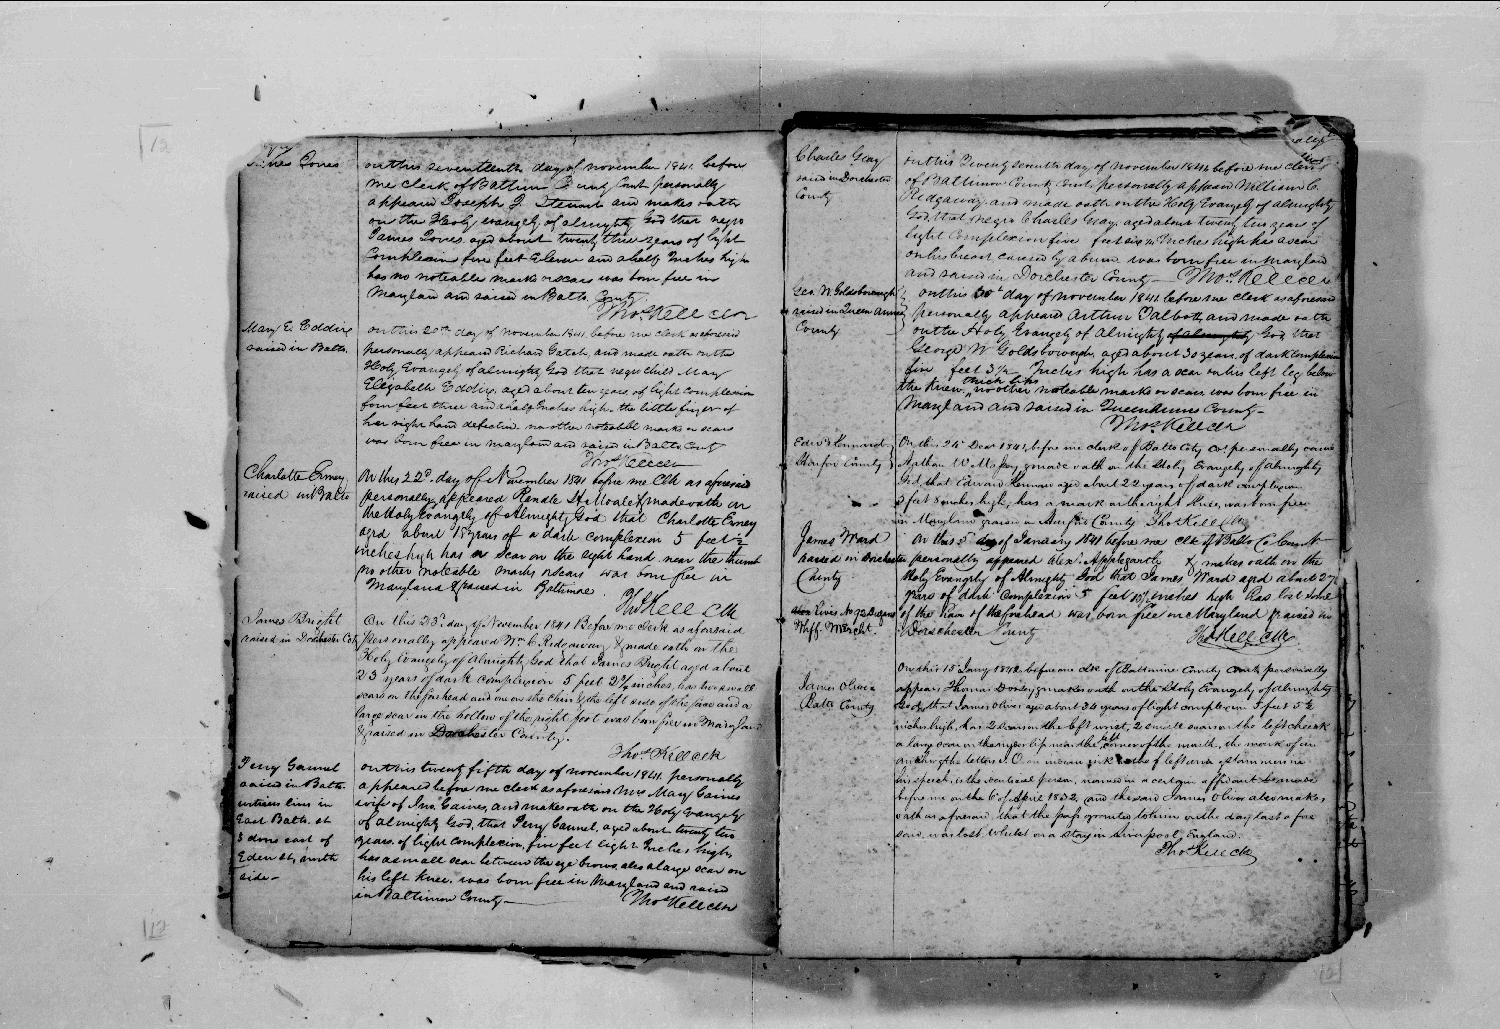 James Jones
on this seventeenth day of november 1841 before
me clerk of Baltimore County Court personally
appeard Joseph J. Stewart and makes oath
on the Holy evangely of almighty God that negro
James Jones aged about twenty three years of light
Complexion five feet Eleven and a half Inches high
has no noteable marks or scars was born free in
Maryland and raised in Balto. County
Thos Kell clk
Mary E. Eddins
raised in Balto.
on this 20th day of november 1841 before me clerk as aforesaid
personally appeard Richard Gatch and made oath on the
Holy Evangely of almighty God that negro child Mary
Elizabeth Eddins, aged about ten years, of light complexion
four feet three and a half Inches high. the little finger of
her right hand defective no other noteable marks or scars
was born free in maryland and raised in Balto. County
Thos Kell clk
Charlotte Emey
raised in Balto
On this 22d. day of November 1841 before me Clk as aforesaid
personally appeared Randle H. Moale & made oath on
the Holy Evangely of Almighty God that Charlotte Emey
aged about 18 years of a dark complexion 5 feet 2
inches high has a scar on the right hand near the thumb
no other noteable marks or scars was born free in
Maryland & raised in Baltimore.
Thos Kell Clk
James Bright
raised in Dorchester Cty
On this 23d. day of November 1841 Before me clerk as aforesaid
personally appeared Wm. C. Ridgaway & made oath on the
Holy Evangely of Almighty God that James Bright aged about
23 years of dark complexion 5 feet 2 1/4 inches, has two small
scars on the forhead and one on the chin & the left side of the face and a
large scar in the hollow of the right foot was born free in Maryland
& raised in Dorchester County.
Thos Kell clk
Perry Gannel
raised in Balto.
witness lives in
East Balto. st
3 doors east of
Eden st, north
side -
on this twenty fifth day of november 1841. personally
appeared before me clerk as aforesaid Mrs Mary Gaines
wife of Jno. Gaines, and makes oath on the Holy Evangely
of almighty God, that Perry Gannel, aged about twenty two
years, of light complexion, five feet eight Inches high,
has a small scar between the eye brows, also a large scar on
his left knee, was born free in Maryland and raised
in Baltimore County -
Thos Kell clk
Charles Gray
raised in Dorchester
County
on this Twenty seventh day of november 1841 before me clerk
of Baltimore County Court, personally appeard William C.
Ridgaway and made oath on the Holy Evangely of almighty
God, that negro Charles Gray, aged about twenty two years of
light Complexion five feet six Inches high has a scar
on his breast caused by a burn was born free in maryland
and raised in Dorchester County - Thos. Kell clk
Geo. W Goldsborough
raised in Queen Anns
County
on this 30th day of november 1841 before me clerk as aforesaid
personally appeard Arthur Talbott, and made oath
on the Holy Evangely of Almighty of almighty God, that
George W Goldsborough aged about 30 years, of dark complexion
five feet 3 1/2 Inches high has a scar on his left leg below
the knee thick lips no other noteable marks or scars was born free in
Maryland and raised in Queen Annes County -
Thos Kell clk
Edwd Kennard
Harford County
On this 24 Decr 1841, before me clerk of Balto City Ct. personally came
Nathan W. & made oath on the Holy Evangely of Almighty
God, that Edward Kennard aged about 22 years of dark complexion
5 feet 8 inches high, has a mark on the right knee, was born free
in Maryland & raised in Harford County Thos Kell Clk
James Ward
raised in Dorchester
County
Lives No 92 Dugans
Whff. Mercht.
On this 5 day of January 1841 before me clk of Balto Co Court
personally appeared Alexr. Applegarth & makes oath on the
Holy Evangely of Almighty God that James Ward aged about 27
years of dark complexion 5 feet inches high has lost some
of the hair of the forehead was born free in Maryland & raised in
Dorchester County
Thos Kell Clk
James Oliver
Balto County
On this 15 Jany 1842 before me Clk of Baltimore County Court personally
appears Thomas Dorsey & makes oath on the Holy Evangely of Almighty
God, that James Oliver aged about 34 years of light complexion 5 feet 5 1/2
inches high, has 2 scars on the left wrist, 2 small scars on the left cheek
a large scar on the upper lip near the left corner of the mouth, the mark of an
anchor & the letters J. O. on in ink of left arm & stammers in
his speech, is the identical person, named in a certain affidavit made
before me on the 6 of April 1832, and the said James Oliver also makes
oath as aforesaid, that the pass granted to him on the day last afore
said, was lost, whilst on a stay in Liverpool, England.
Thos Kell Clk